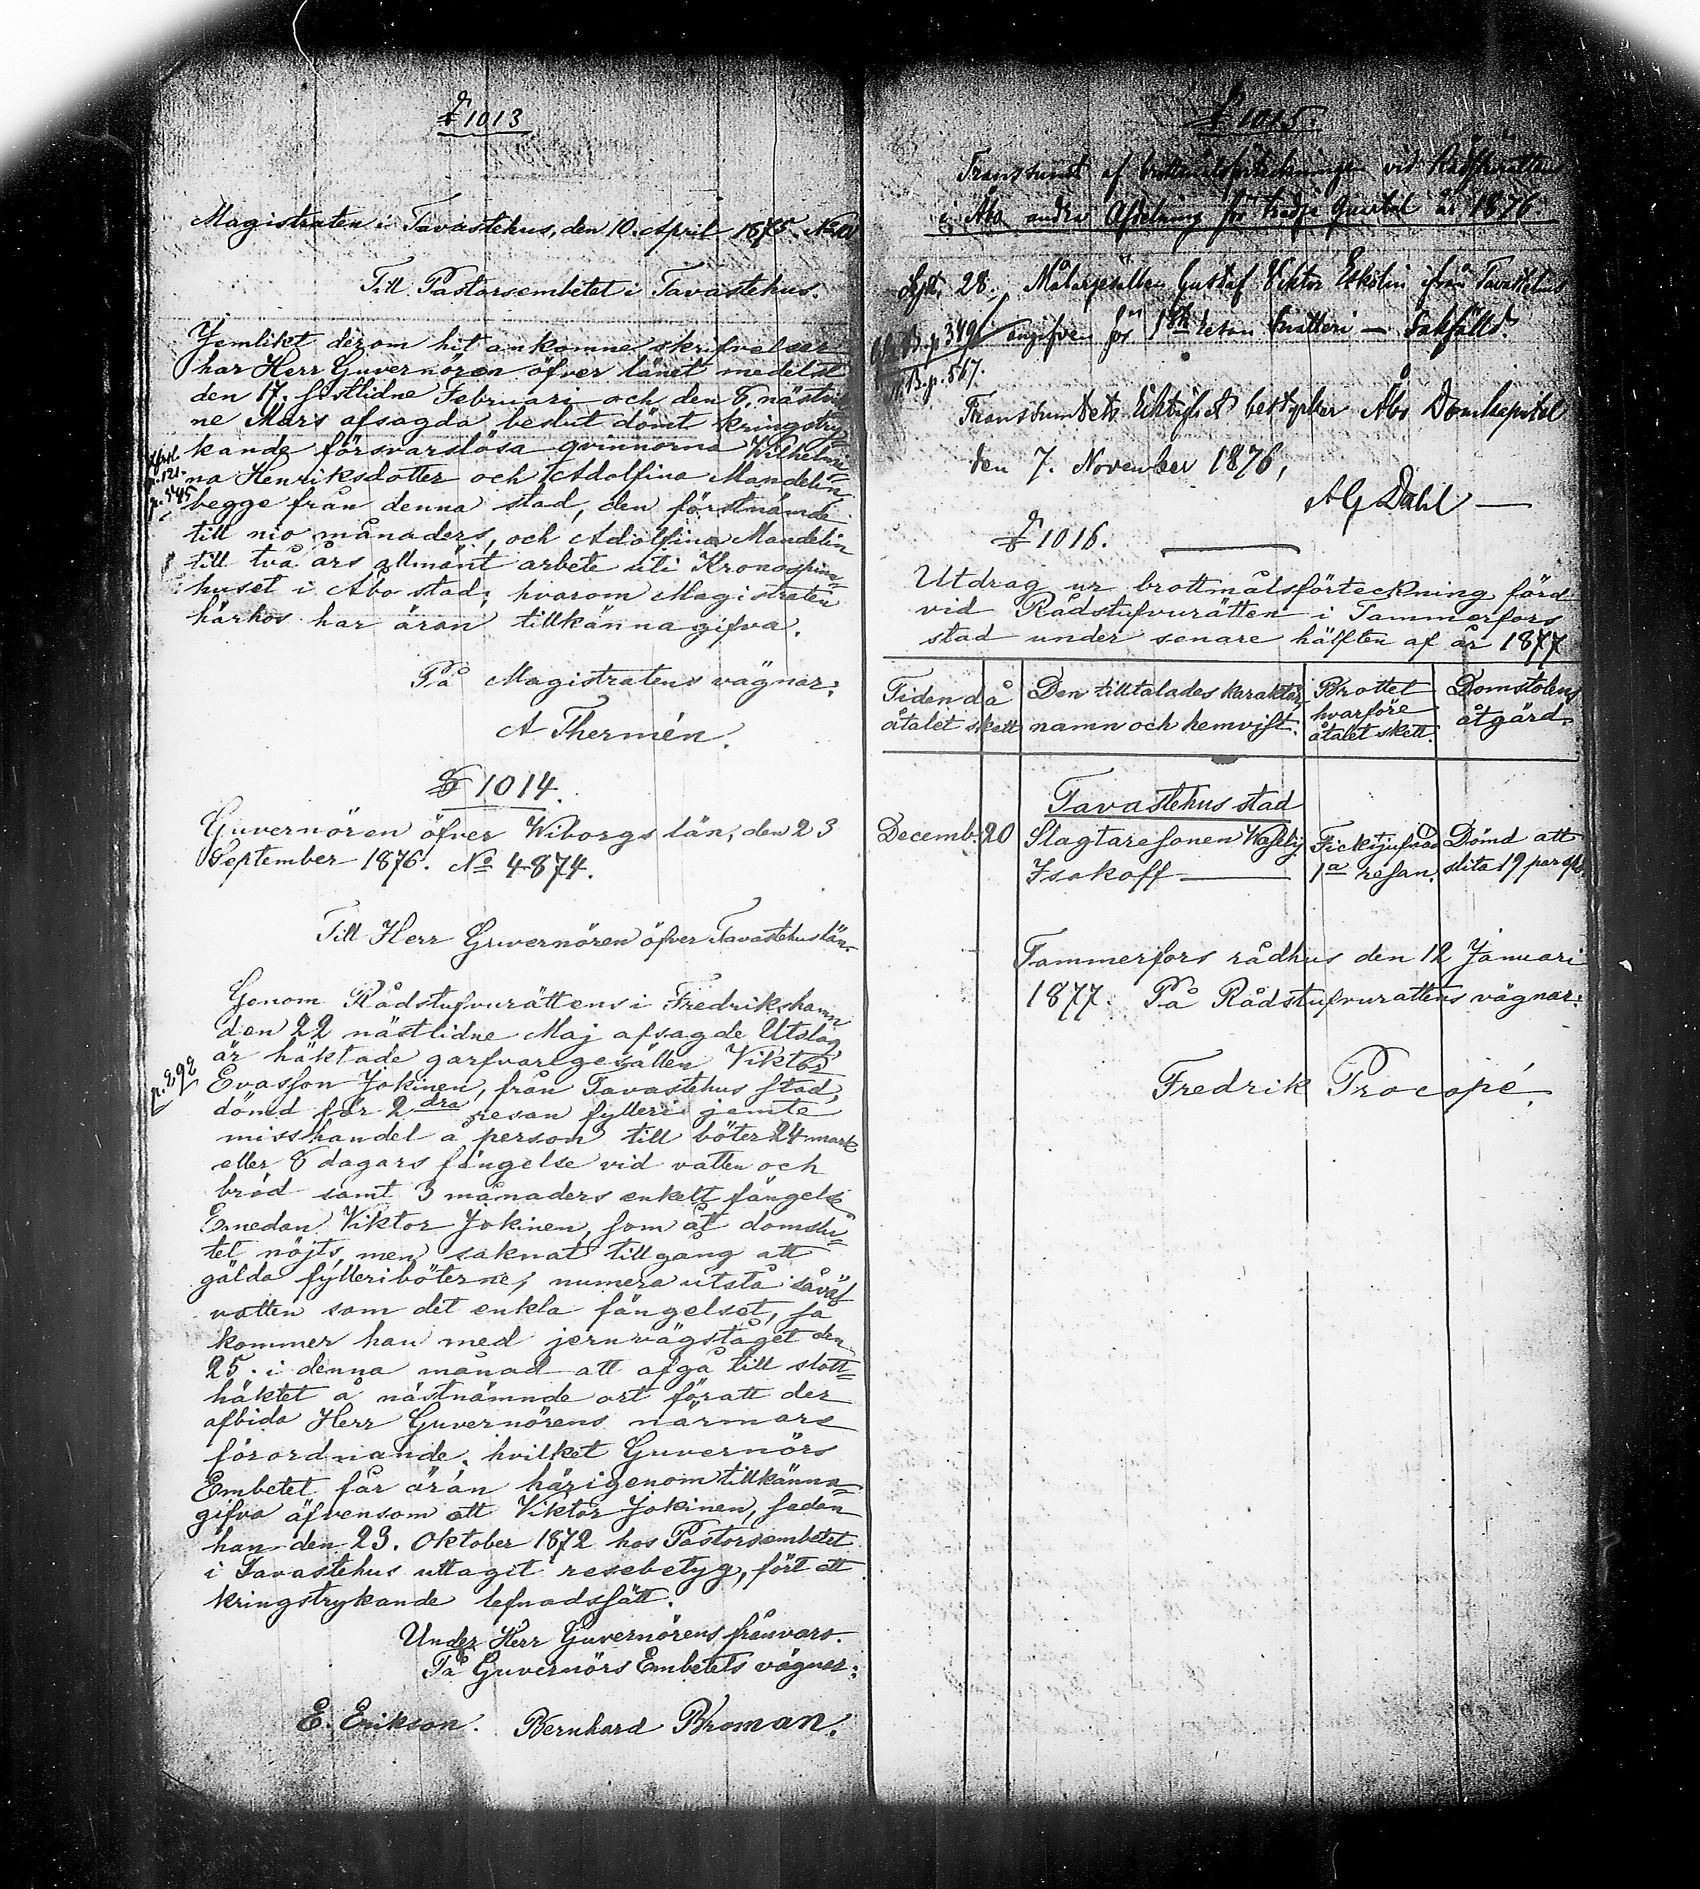 § 1013
Magistraten i Tavastehus, den 10. April 1875. No
Till Pastorsembetet i Tavastehus.
Jemlikt derom hit ankomne skrifvelser
har Herr Guvernören öfver länet medelst
den 17. sistlidne Februari och den 8. nästvik=
ne Mars afsagda beslut dömt kringstry=
kande försvarslösa qvinnorna Wilhelmi=
na Henriksdotter och Adolfina Mandelin
p. 121.
p. 545
begge från denna stad, den förstnämde
till nio månaders, och Adolfina Mandelin
till två års allmänt arbete uti Kronospinn=
huset i Åbo stad; hvarom Magistraten
härhos har äran tillkännagifva.
På Magistratens vägnar:
A Thermén.
§ 1014.
Guvernören öfver Wiborgs län, den 23
September 1876. No 4874.
Till Herr Guvernören öfver Tavastehus län.
Genom Rådstufvurättens i Fredrikshamn
den 22 nästlidne Maj afsagde Utslag
är häktade garfvaregesällen Viktor
p. 292
Evasson Jokinen, från Tavastehus stad,
dömd för 2dra resan fylleri jemte
misshandel å person till böter 24 mark
eller 8 dagars fängelse vid vatten och
bröd samt 3 månaders enkelt fängelse
Emedan Viktor Jokinen, som åt domslu=
tet nöjts, men saknat tillgang att
gälda fylleriböterne, numera utstå såväl
vatten som det enkla fängelset, så
kommer han med jernvägståget den
25. i denna månad att afgå till slott=
häktet å nästnämnde ort för att der
afbida Herr Guvernörens närmare
förordnande, hvilket Guvernörs
Embetet får äran härigenom tillkänna=
gifva äfvensom att Viktor Jokinen, sedan
han den 23. Oktober 1872 hos Pastorsembetet
i Tavastehus uttagit resebetyg, fört ett
kringstrykande lefnadssätt.
Under Herr Guvernörens frånvaro.
På Guvernörs Embetets vägnar:
E. Erikson. Bernhard Broman.
§ 1015.
Transsumt af brottmålsförteckningen vid Rådstufvurätten
i Åbo andra Afdelning för tredje qvartal år 1876.
Sept. 28. Målaregesällen Gustaf Viktor Eskolin ifrån Tavastehus
p. 349 angifven för 1sta resan snatteri — Sakfälld.
p. 567.
Transsumtets riktighet bestyrker Åbo Domkapitel
den 7. November 1876,
AG Dahl —
§ 1016.
Utdrag ur brottmålsförteckning förd
vid Rådstufvurätten i Tammerfors
stad under senare hälften af år 1877
Tiden då åtalet skett
Den tilltalades karakter, namn och hemvist.
Brottet hvarföre åtalet skett.
Domstolens åtgärd.
Tavastehus stad
Decemb. 20 Slagtaresonen Wasilij Isakoff —
Ficktjufnad 1a resan.
Dömd att slita 19 par spö.
Tammerfors rådhus den 12 Januari
1877. På Rådstufvurattens vägnar:
Fredrik Procopé.